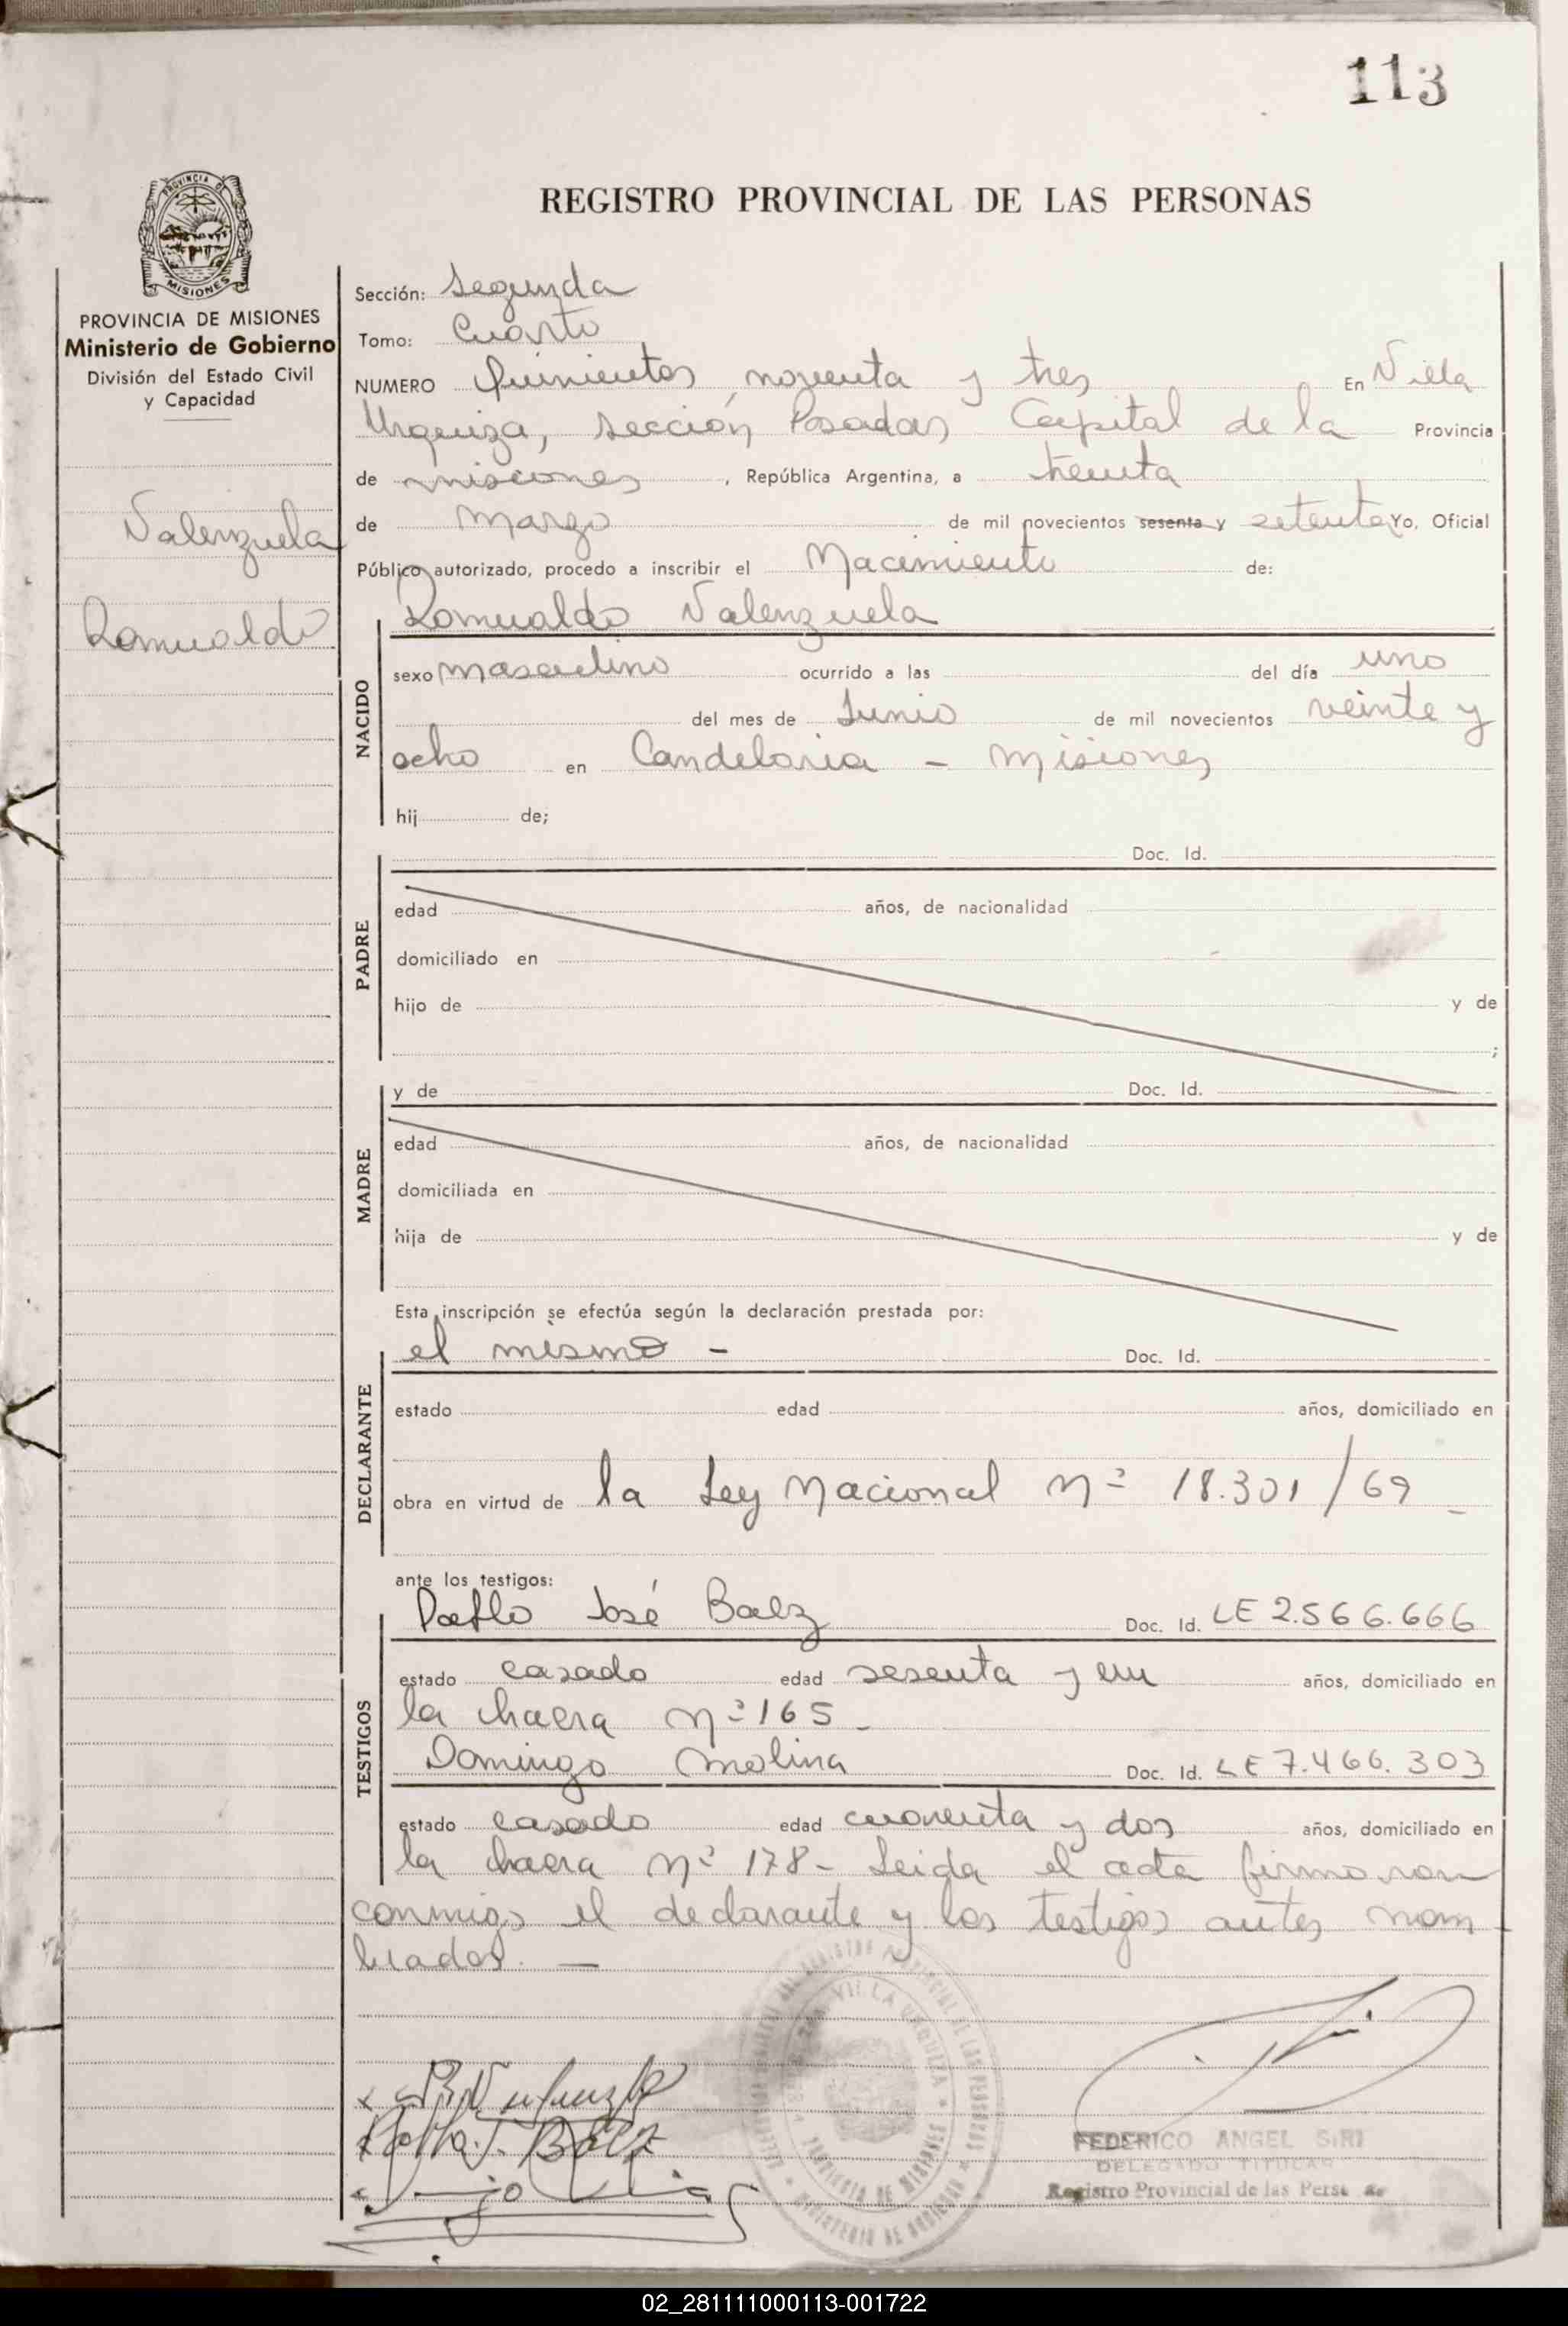 113
REGISTRO PROVINCIAL DE LAS PERSONAS
PROVINCIA DE MISIONES
PROVINCIA DE MISIONES
Ministerio de Gobierno
División del Estado Civil
y Capacidad
Valenzuela
Romualdo
Sección: Segunda
Tomo: Cuarto
NUMERO Quinientos noventa y tres En Villa
Urquiza, sección Posadas Capital de la Provincia
de misiones, República Argentina, a treinta
de Marzo de mil novecientos sesenta y setenta Yo, Oficial
Público autorizado, procedo a inscribir el Nacimiento de:
Romualdo Valenzuela
NACIDO
sexo masculino ocurrido a las del día uno
del mes de Junio de mil novecientos veinte y
ocho en Candelaria - Misiones
hij de;
PADRE
Doc. Id.
edad años, de nacionalidad
domiciliado en
hijo de y de
;
MADRE
y de Doc. Id.
edad años, de nacionalidad
domiciliada en
hija de y de
Esta inscripción se efectúa según la declaración prestada por:
DECLARANTE
el mismo - Doc. Id.
estado edad años, domiciliado en
obra en virtud de la Ley Nacional Nº 18.301/69 -
ante los testigos:
TESTIGOS
Pablo José Baez Doc. Id. LE 2.566.666
estado casado edad sesenta y un años, domiciliado en
la chacra nº 165 -
Domingo Molina Doc. Id. LE 7.466.303
estado casado edad cuarenta y dos años, domiciliado en
la chacra nº 178 - Leida el acta firmaron
conmigo el declarante y los testigos antes nom
brados. -
VILLA URQUIZA
PROVINCIA DE MISIONES
MINISTERIO DE GOBIERNO
Pablo J. Baez
FEDERICO ANGEL SIRI
DELEGADO TITULAR
Registro Provincial de las Perso as
02_281111000113-001722